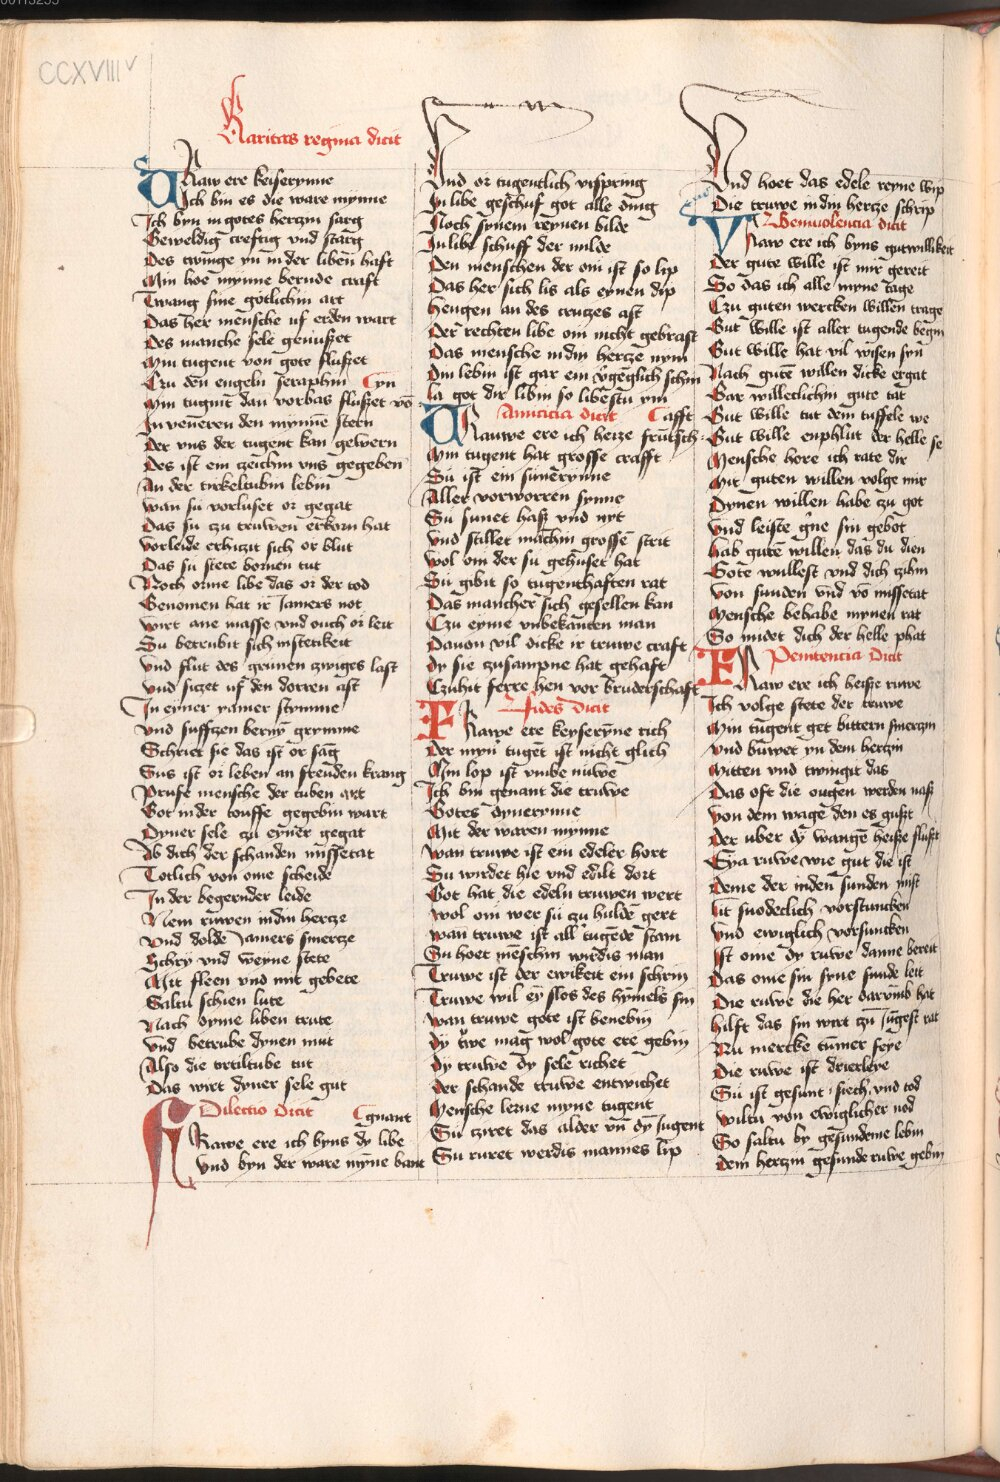 CCXVIII v
Karitas regina dicit
Vraw ere keiserynne
Ich bin es die ware mynne
Ich byn in gotes hertzin sarg
Geweldig creftig vnd starg
Des twinge yn in der liben haft
Min hoe mynne bernde craft
Twang sine gotlichin art
Das her mensche uf erden wart
Des manche sele genußet
Min tugent von gote flußet
Czu den engeln seraphin
Min tugent dan vorbas flußet
In veneren den mynne stern
Der vns der tugent kan gewern
Des ist ein czeichin vns gegeben
An der tirkeltubin lebin
Wan su vorluset or gegat
Das su czu truwen erkorn hat
Vorleide erhiczit sich or blut
Das su stete bornen tut
Noch orme libe das or der tod
Genomen hat ir Jamers not
Wirt ane masse vnd ouch or leit
Su betrubit sich mit stetikeit
Vnd flut des grunen zwiges last
Vnd siczet uf den dorren ast
In eyner Jamer stymme
Vnd suffczen berny grymme
Schriet sie das ist or sag
Sus ist or leben an freuden krang
Prufe mensche der tuben art
Got in der touffe gegebin wart
Dyner sele czu eyner gegat
Ab dich der schanden missetat
Totlich von ome scheide
In der begernder leide
Nem ruwen in din hertze
Vnd dolde Jamers smertze
Schry vnd weyne stete
Mit fleen vnd mit gebete
Saltu schien lute
Nach dyme liben trute
Vnd betrube dynen mut
Also die tortiltube tut
Das wirt dyner sele gut
Dilectio Dicit
Gnant
Frawe ere ich byns dy libe
Vnd byn der ware mynne bant
Vnd or tugentlich vrspring
In libe geschuf got alle ding
Noch synem reynen bilde
In libe schuff der milde
Den menschen der om ist so lip
Das her sich lis als eynen dip
Hengen an des cruczes ast
Der rechten libe om nicht gebrast
Das mensche in din hertze nym
Din lebin ist gar ein schin
La got dir libin so libestu ym
Amicicia dicit
Crafft
Vrauwe ere ich heize fruntsch
Min tugent hat grosse crafft
Su ist ein sunerynne
Aller vorworren synne
Su sunet haß vnd nyt
Vnd stillet machin grosse strit
Wol om der su gehuset hat
Su gibit so tugenthaften rat
Das mancher sich gesellen kan
Czu eyme vnbekanten man
Dauon vil dicke ir truwe craft
Dy sie zusampne hat gehaft
Czuhit ferre hen vor bruderschaft
Fides Dicit
Frawe ere keyseryne rich
Der myn tugent ist nicht glich
Min lop ist vmbe nuwe
Ich bin genant die truwe
Gotes dynerynne
Mit der waren mynne
Wan truwe ist ein edeler hort
Su wirdet hie vnd edilt dort
Got hat die edeln truwen wert
Wol om wer su zu hulde gert
Wan truwe ist all tugede stam
Su hoet menschin wirdis man
Truwe ist der ewikeit ein schrin
Truwe wil ey slos des hymels sin
Wan truwe gote ist benebin
Dy trwe mag wol gote ere gebin
Dy truwe dy sele richet
Der schande truwe entwichet
Mensche lerne myne tugent
Su cziret das alder vn dy Jugent
Su ruret werdis mannes lip
Vnd hoet das edele reyne wip
Die truwe in din hertze schrip
Beniuolencia dicit
Vraw ere ich byns gutwillikeit
Der gute wille ist mir gereit
So das ich alle myne tage
Czu guten wercken willen trage
Gut wille ist aller tugende begin
Gut wille hat vil wisen syn
Nach gute willen dicke ergat
Gar willeclichin gute tat
Gut wille tut dem tuffele we
Gut wille enphlut der helle se
Mensche hore ich rate dir
Mit guten willen volge mir
Dynen willen habe zu got
Vnd leiste gne sin gebot
Hab gute willen das du dien
Gote wullest vnd dich czihin
Von sunden vnd vo missetat
Mensche behabe mynen rat
So midet dich der helle phat
Penitencia Dicit
Fraw ere ich heiße ruwe
Ich volge stete der truwe
Min tugent get bittern smerczin
Vnd buwet yn dem hertzin
Mitten vnd twingit das
Das oft die ougen werden naß
Von dem wage den es gußit
Der uber dy wange heiße flußit
Eya ruwe wie gut die ist
Deme der in den sunden mist
Lit snodeclich vorstuncken
Vnd ewiglich vorsuncken
Ist ome dy ruwe danne bereit
Das ome sin syne sunde leit
Die ruwe die her darumb hat
Hilft das sin wirt czu Jungest rat
Nu mercke tumer seye
Die ruwe ist drierleye
Sii ist gesunt siech vnd tod
Wiltu von ewiglicher nod
So saltu by gesundeme lebin
Dem hertzin gesunde ruwe gebin